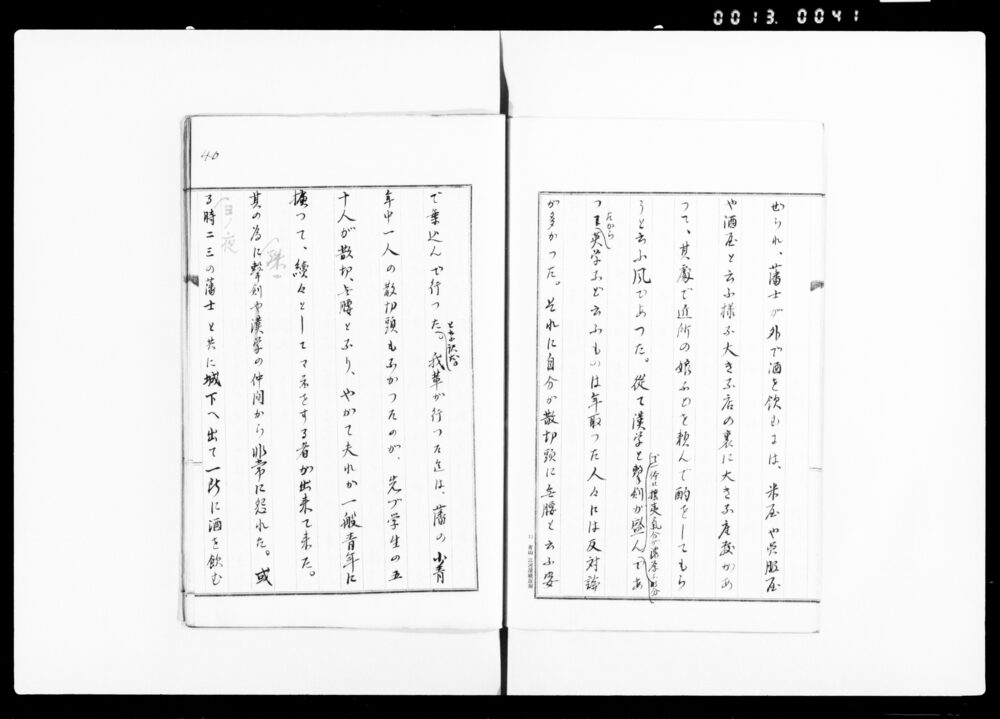 0013.0041
せられ、藩士が外で酒を飲むには、米屋や呉服屋
や酒屋と云ふ様な大きな店の裏に大きな座敷があ
つて、其處で近所の娘などを頼んで酌をしてもら
うと云ふ風であつた。從て漢学と撃剣が盛んであ
つて英学などと云ふものは年取つた人々には反対論
だから
が多かつた。それに自分が散切頭に無腰と云ふ姿
40
で乗込んで行つた。我輩が行つた迄は、藩の小青
と云ふ訳だ。
年中一人の散切頭もなかつたのが、先づ学生の五
十人が散切、無腰となり、やがて夫れが一般青年に
擴つて、續々としてマネをする者が出来て来た。
其の為に撃剣や漢学の仲間から非常に怨れた。或
る時二三の藩士と共に城下へ出て一所に酒を飲む
日ノ夜